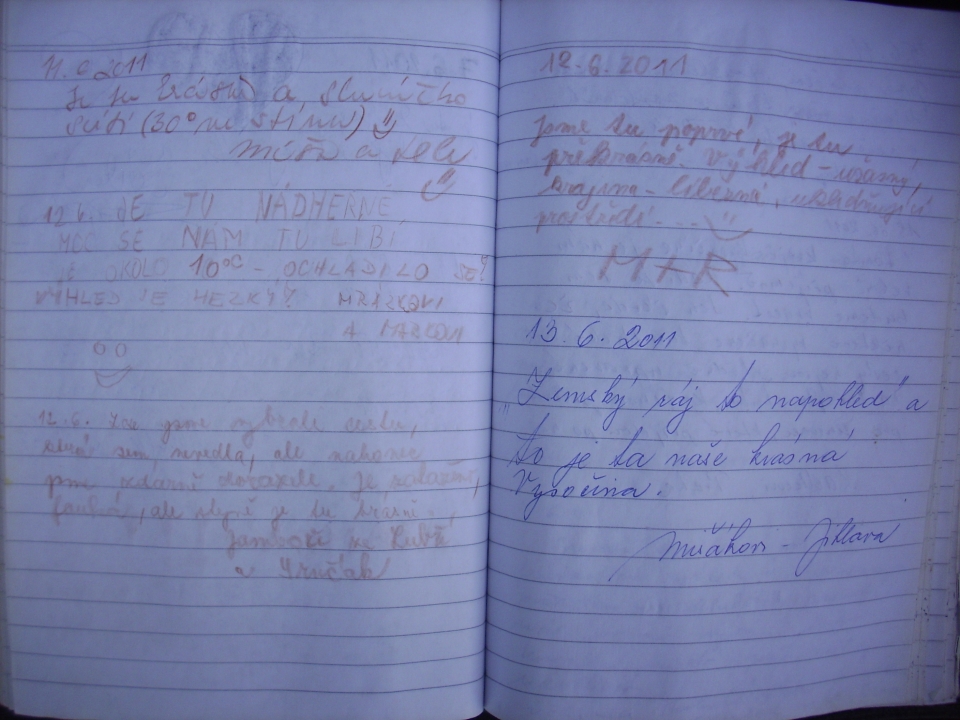 11. 6 2011
Je tu krásně a sluníčko
svítí (30° ve stínu)
Míša a
12.6. JE TU NÁDHERNĚ,
MOC SE NÁM TU LÍBÍ
JE OKOLO 10°C - OCHLADILO SE!
VÝHLED JE HEZKÝ! MRÁZKOVI
A
12.6. jsme vybrali cestu,
která sem nevedla, ale nakonec
jsme zdárně dorazili. Je zataženo,
fouká, ale stejně je tu krásně.
ze
a
12.6.2011
Jsme tu poprvé, je tu
překrásně. Výhled - úžasný,
krajina - líbezná, uklidňující
prostředí....
M+R
13.6.2011
"Zemský ráj to napohled" a
to je ta naše krásná
Vysočina.
- Jihlava